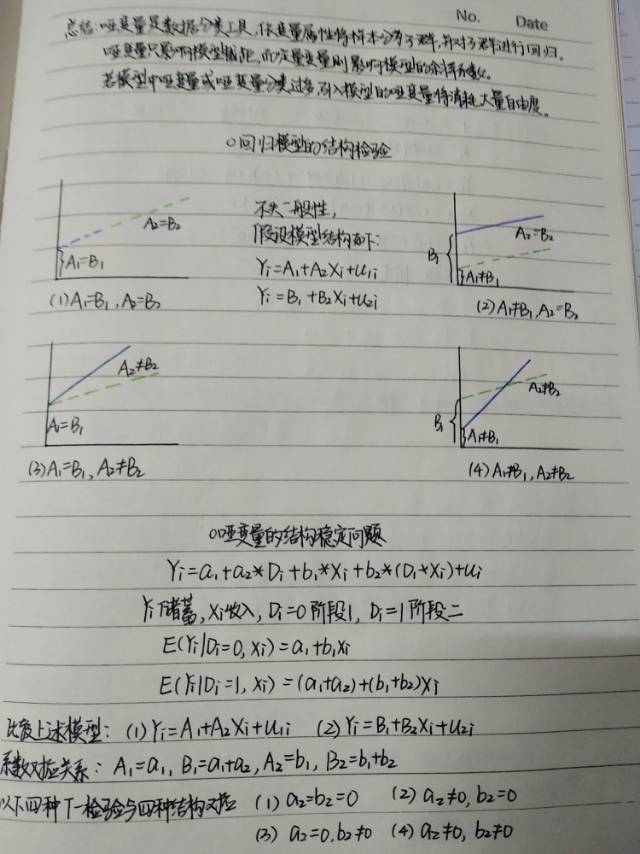 No. Date
总结:哑变量是数据分类工具,依变量属性将样本分为子群,并对子群进行回归。
哑变量只影响模型截距,而定量变量则影响模型的斜率系数。
若模型中哑变量或哑变量分类过多,引入模型的哑变量将消耗大量自由度。
○回归模型的结构检验
A₂=B₂
A₁=B₁
(1)A₁=B₁,A₂=B₂
不失一般性,
假设模型结构如下:
Yi=A₁+A₂Xi+u₁i
Yi=B₁+B₂Xi+u₂i
A₂=B₂
B₁
A₁≠B₁
(2)A₁≠B₁,A₂=B₂
A₂≠B₂
A₁=B₁
(3)A₁=B₁,A₂≠B₂
A₂≠B₂
B₁
A₁≠B₁
(4)A₁≠B₁,A₂≠B₂
○哑变量的结构稳定问题
Yi=a₁+a₂*Di+b₁*Xi+b₂*(Di*Xi)+ui
Yi储蓄,Xi收入,Di=0阶段1,Di=1阶段二
E(Yi|Di=0,Xi)=a₁+b₁Xi
E(Yi|Di=1,Xi)=(a₁+a₂)+(b₁+b₂)Xi
比较上述模型:(1)Yi=A₁+A₂Xi+u₁i (2)Yi=B₁+B₂Xi+u₂i
系数对应关系:A₁=a₁,B₁=a₁+a₂,A₂=b₁,B₂=b₁+b₂
以下四种T-检验与四种结构对应 (1)a₂=b₂=0 (2)a₂≠0,b₂=0
(3)a₂=0,b₂≠0 (4)a₂≠0,b₂≠0